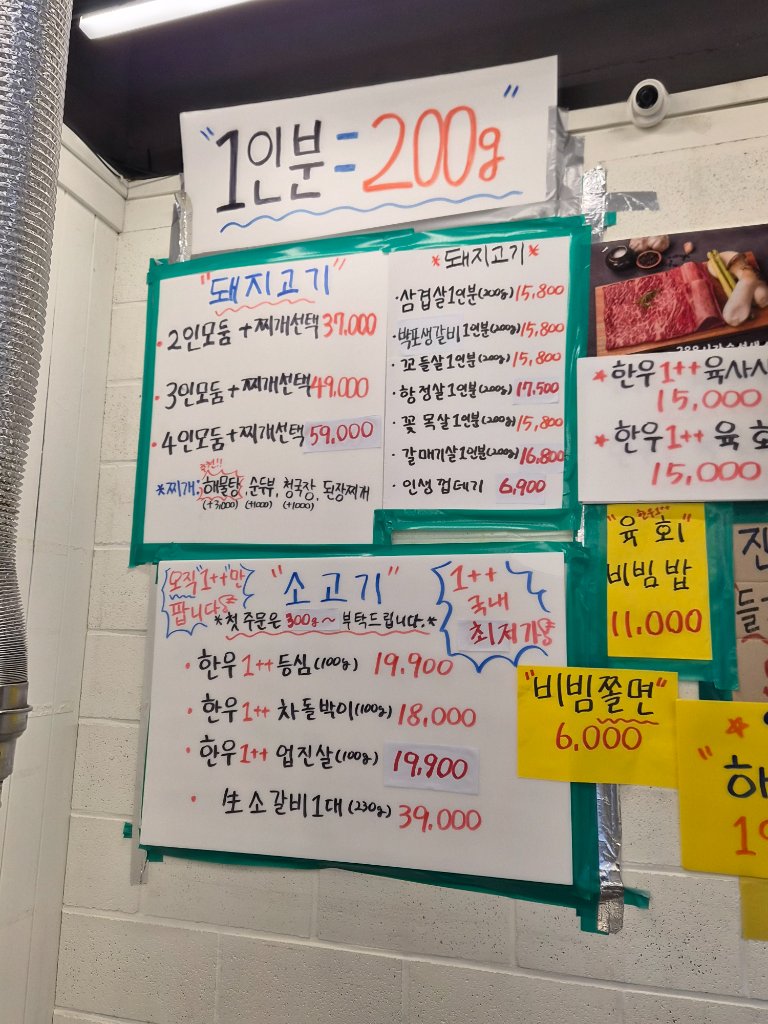 "1인분=200g"
"돼지고기"
·2인모둠+찌개선택 37,000
·3인모둠+찌개선택 49,000
·4인모둠+찌개선택 59,000
추천!!
*찌개: 해물탕, 순두부, 청국장, 된장찌개
(+3,000) (+1000) (+1000)
*돼지고기*
·삼겹살1인분(200g) 15,800
·박포생갈비1인분(200g) 15,800
·꼬들살1인분(200g) 15,800
·항정살1인분(200g) 17,500
·꽃목살1인분(200g) 15,800
·갈매기살1인분(200g) 16,800
·인생껍데기 6,900
*한우1++육사시
15,000
*한우1++육회
15,000
오직"1++"만
팝니다
"소고기"
*첫 주문은 300g~ 부탁드립니다.*
1++
국내
최저가
·한우1++등심(100g) 19,900
·한우1++차돌박이(100g) 18,000
·한우1++업진살(100g) 19,900
·生소갈비1대(230g) 39,000
한우1++
"육회"
비빔밥
11,000
"비빔쫄면"
6,000